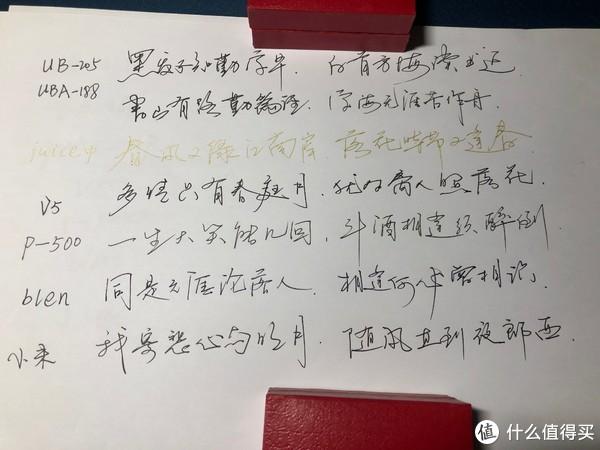 UB-205 黑发不知勤学早. 白首方悔读书迟
UBA-188 书山有路勤为径. 学海无涯苦作舟
juice 春风又绿江南岸. 落花时节又逢君
V5 多情只有春庭月. 犹为离人照落花.
P-500 一生大笑能几回, 斗酒相逢须醉倒
blen 同是天涯沦落人. 相逢何必曾相识,
小米 我寄愁心与明月. 随风直到夜郎西.
值 什么值得买